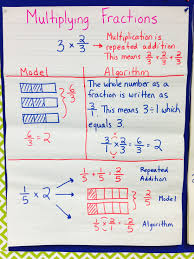 Multiplying Fractions
3 × 2/3 → Multiplication is
repeated addition
This means 2/3 + 2/3 + 2/3
Model
Algorithm
6/3
6/3 = 2
The whole number as a
fraction is written as
3/1. This means 3÷1 which
equals 3.
3/1 × 2/3 = 6/3 = 2
1/5 × 2
1/5 + 1/5 = 2/5
Repeated
Addition
2/5
Model
1/5 × 2/1 = 2/5
Algorithm